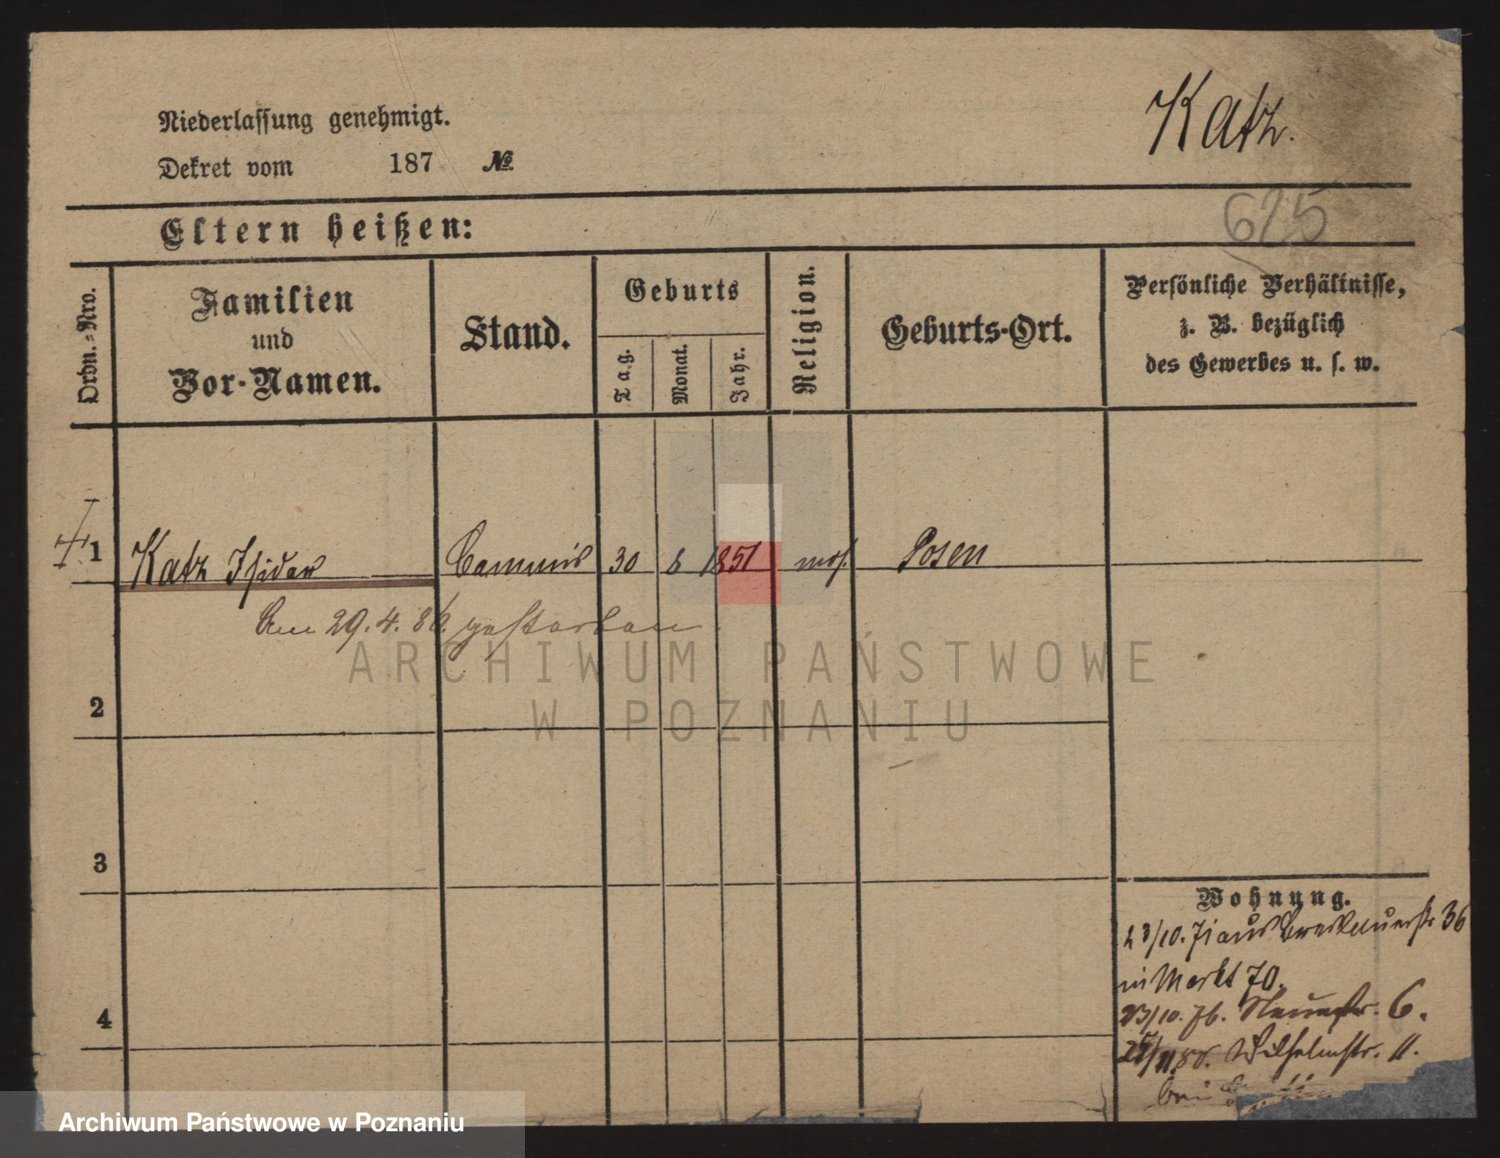 Niederlassung genehmigt.
Katz.
Dekret vom 187 №
Eltern heißen:
625
Ordn.-Nro.
Familien
und
Vor-Namen.
Stand.
Geburts
Tag.
Monat.
Jahr.
Religion.
Geburts-Ort.
Persönliche Verhältnisse,
z. B. bezüglich
des Gewerbes u. s. w.
1 Katz Isidor Commis 30 6 1851 mos. Posen
Am 29.4.86. gestorben.
ARCHIWUM PAŃSTWOWE
W POZNANIU
2
3
4
Wohnung.
23/10. 71 aus Breslauerstr 36
in Markt 70.
23/10. 76. Neuestr. 6.
Wilhelmstr. 11.
bei
Archiwum Państwowe w Poznaniu